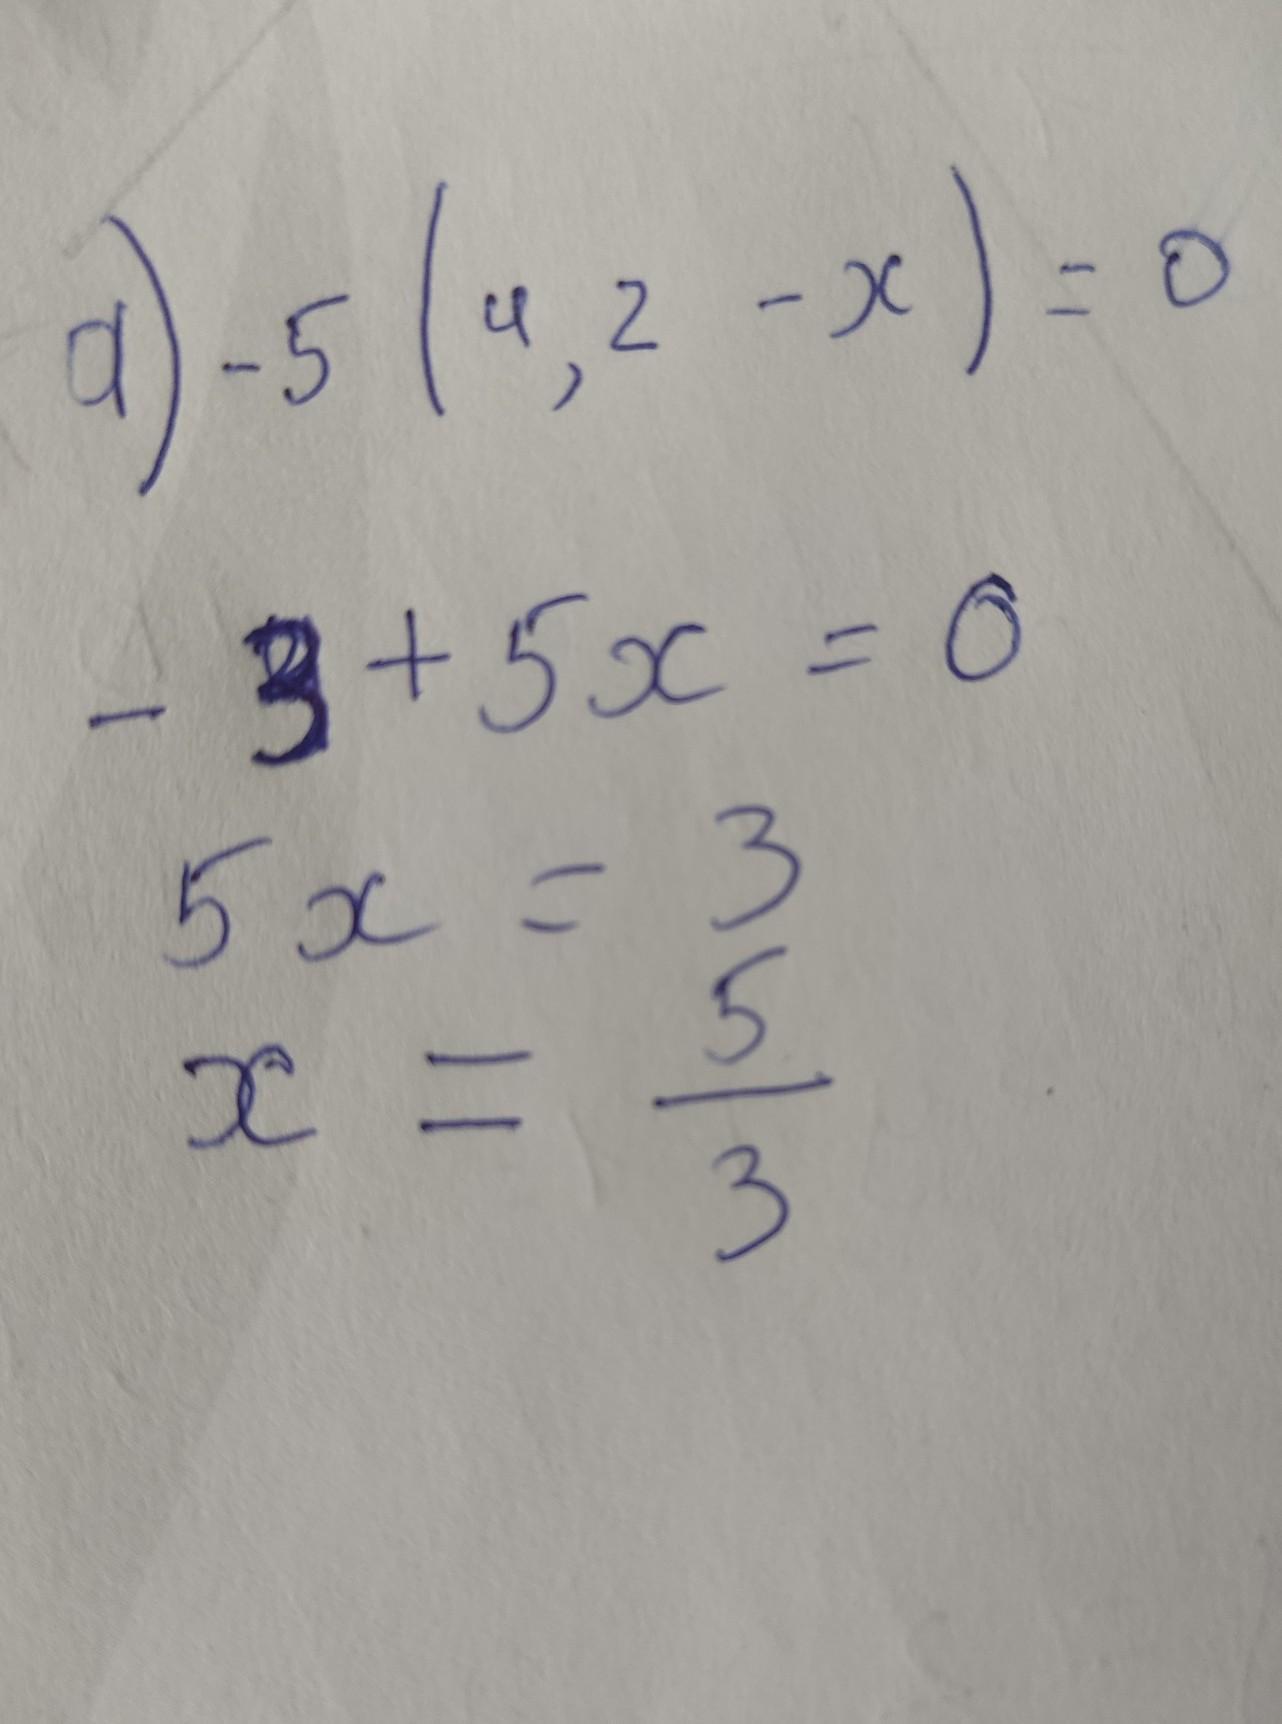 a) -5 (4,2 - x) = 0
- 3 + 5x = 0
5x = 3
x = 5/3